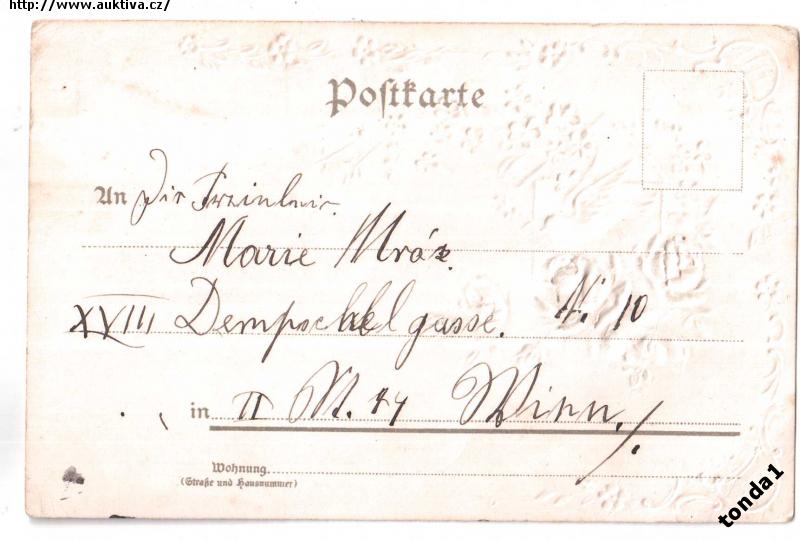 http://www.auktiva.cz/
Postkarte
An Die Freinleir.
Marie Mráz.
XVIII Dempschelgasse. N. 10
in II St. 74 Wien,/.
Wohnung
(Straße und Hausnummer)
tonda1